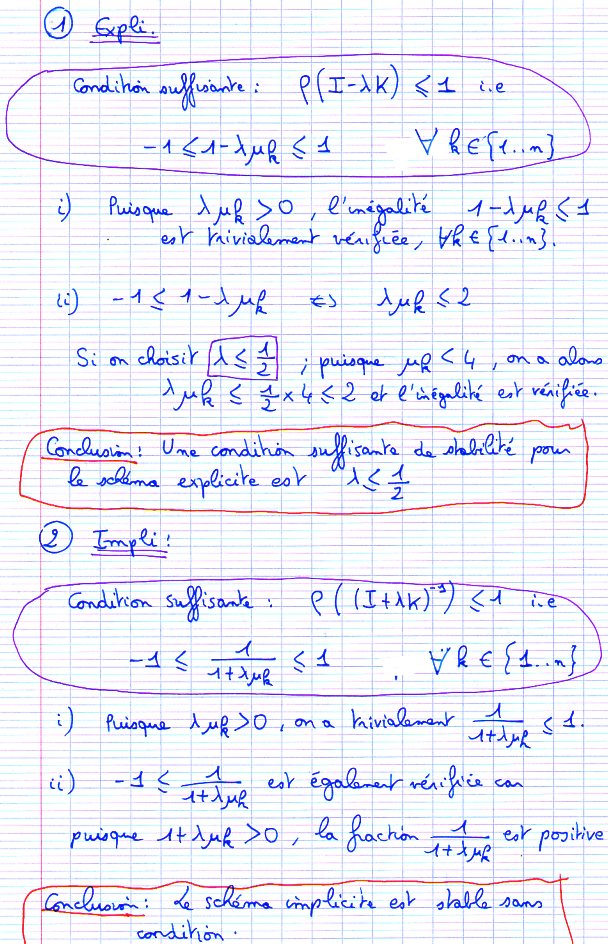 ① Expli.
Condition suffisante : ρ(I-λK) ≤ 1 i.e
-1 ≤ 1-λμk ≤ 1 ∀ k ∈ {1..n}
i) Puisque λμk > 0, l'inégalité 1-λμk ≤ 1
est trivialement vérifiée, ∀k ∈ {1..n}.
ii) -1 ≤ 1-λμk ⇔ λμk ≤ 2
Si on choisit λ ≤ 1/2 ; puisque μk < 4, on a alors
λμk ≤ 1/2 × 4 ≤ 2 et l'inégalité est vérifiée.
Conclusion : Une condition suffisante de stabilité pour
le schéma explicite est λ ≤ 1/2
② Impli :
Condition suffisante : ρ((I+λK)⁻¹) ≤ 1 i.e
-1 ≤ 1/(1+λμk) ≤ 1 ∀ k ∈ {1..n}
i) Puisque λμk > 0, on a trivialement 1/(1+λμk) ≤ 1.
ii) -1 ≤ 1/(1+λμk) est également vérifiée car
puisque 1+λμk > 0, la fraction 1/(1+λμk) est positive
Conclusion : Le schéma implicite est stable sans
condition.